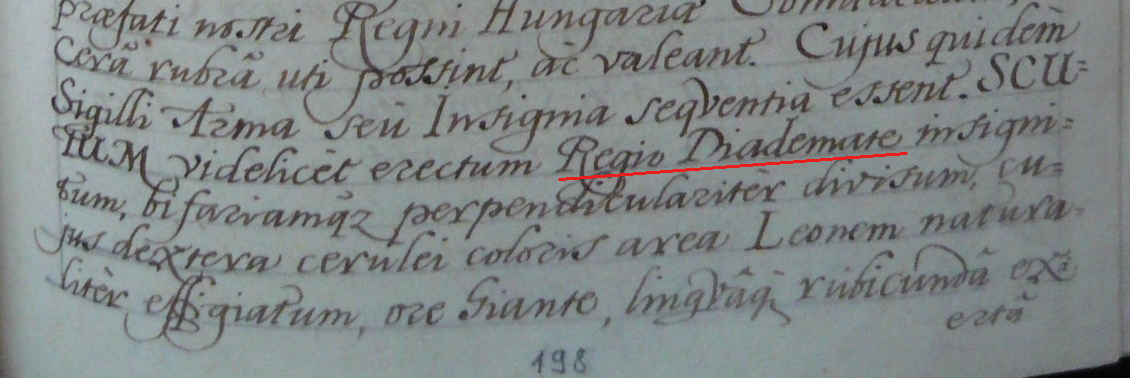 præfati nostri Regni Hungariæ
Cerâ rubrâ uti possint, ac valeant. Cujus quidem
Sigilli Arma seu Insignia seqventia essent. SCU=
TUM videlicèt erectum Regio Diademate insigni=
tum, bifariamq3 perpendiculàritèr divisum, cu=
jus dextera cerulei coloris area Leonem natura-
litèr effigiatum, ore hiante, lingvâq; rubicundâ ex=
ertâ
198